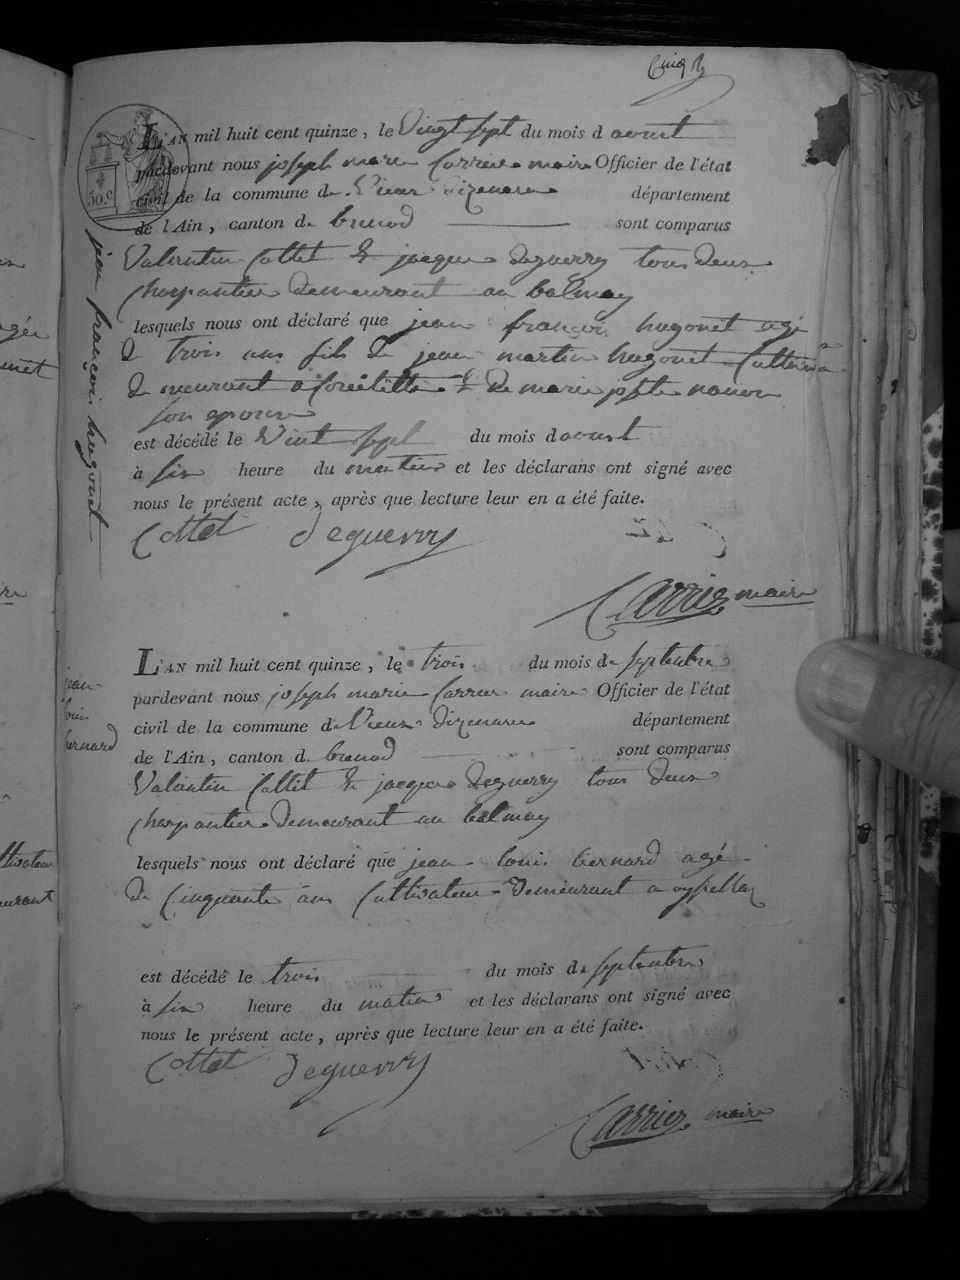 Cinq
50.c
L'AN mil huit cent quinze, le Vingt sept du mois d aoust
pardevant nous joseph marie Carrier maire Officier de l'état
civil de la commune de Vieux dizenave département
de l'Ain, canton de brenod sont comparus
Valentin Cottet & jacque deguerry tous deux
charpantier demeurant au balmay
lesquels nous ont déclaré que jean françois hugonet agé
de trois ans fils de jean martin hugonet
demeurant a & de marie
son epouse
est décédé le Vint sept du mois d aoust
à six heure du matin et les déclarans ont signé avec
nous le présent acte, après que lecture leur en a été faite.
Cottet deguerry
Carrier maire
jean françois hugonet
L'AN mil huit cent quinze, le trois du mois de septembre
pardevant nous joseph marie Carrier maire Officier de l'état
civil de la commune de Vieux dizenave département
de l'Ain, canton de brenod sont comparus
Valentin Cottet & jacque deguerry tous deux
charpantier demeurant au balmay
lesquels nous ont déclaré que jean louis bernard agé
de Cinquante ans Cultivateur demeurant a
est décédé le trois du mois de septembre
à six heure du matin et les déclarans ont signé avec
nous le présent acte, après que lecture leur en a été faite.
Cottet deguerry
Carrier maire
jean
louis
bernard